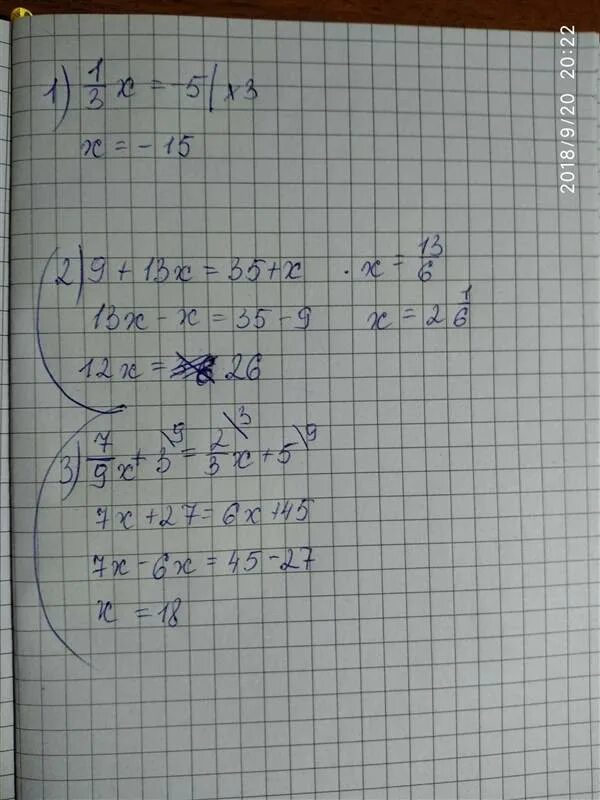 2018/9/20 20:22
1) 1/3 x = -5 | x3
x = -15
2) 9 + 13x = 35 + x
13x - x = 35 - 9
12x = 26
x = 13/6
x = 2 1/6
3) 7/9 x + 3\9 = 2\3/3 x + 5\9
7x + 27 = 6x + 45
7x - 6x = 45 - 27
x = 18